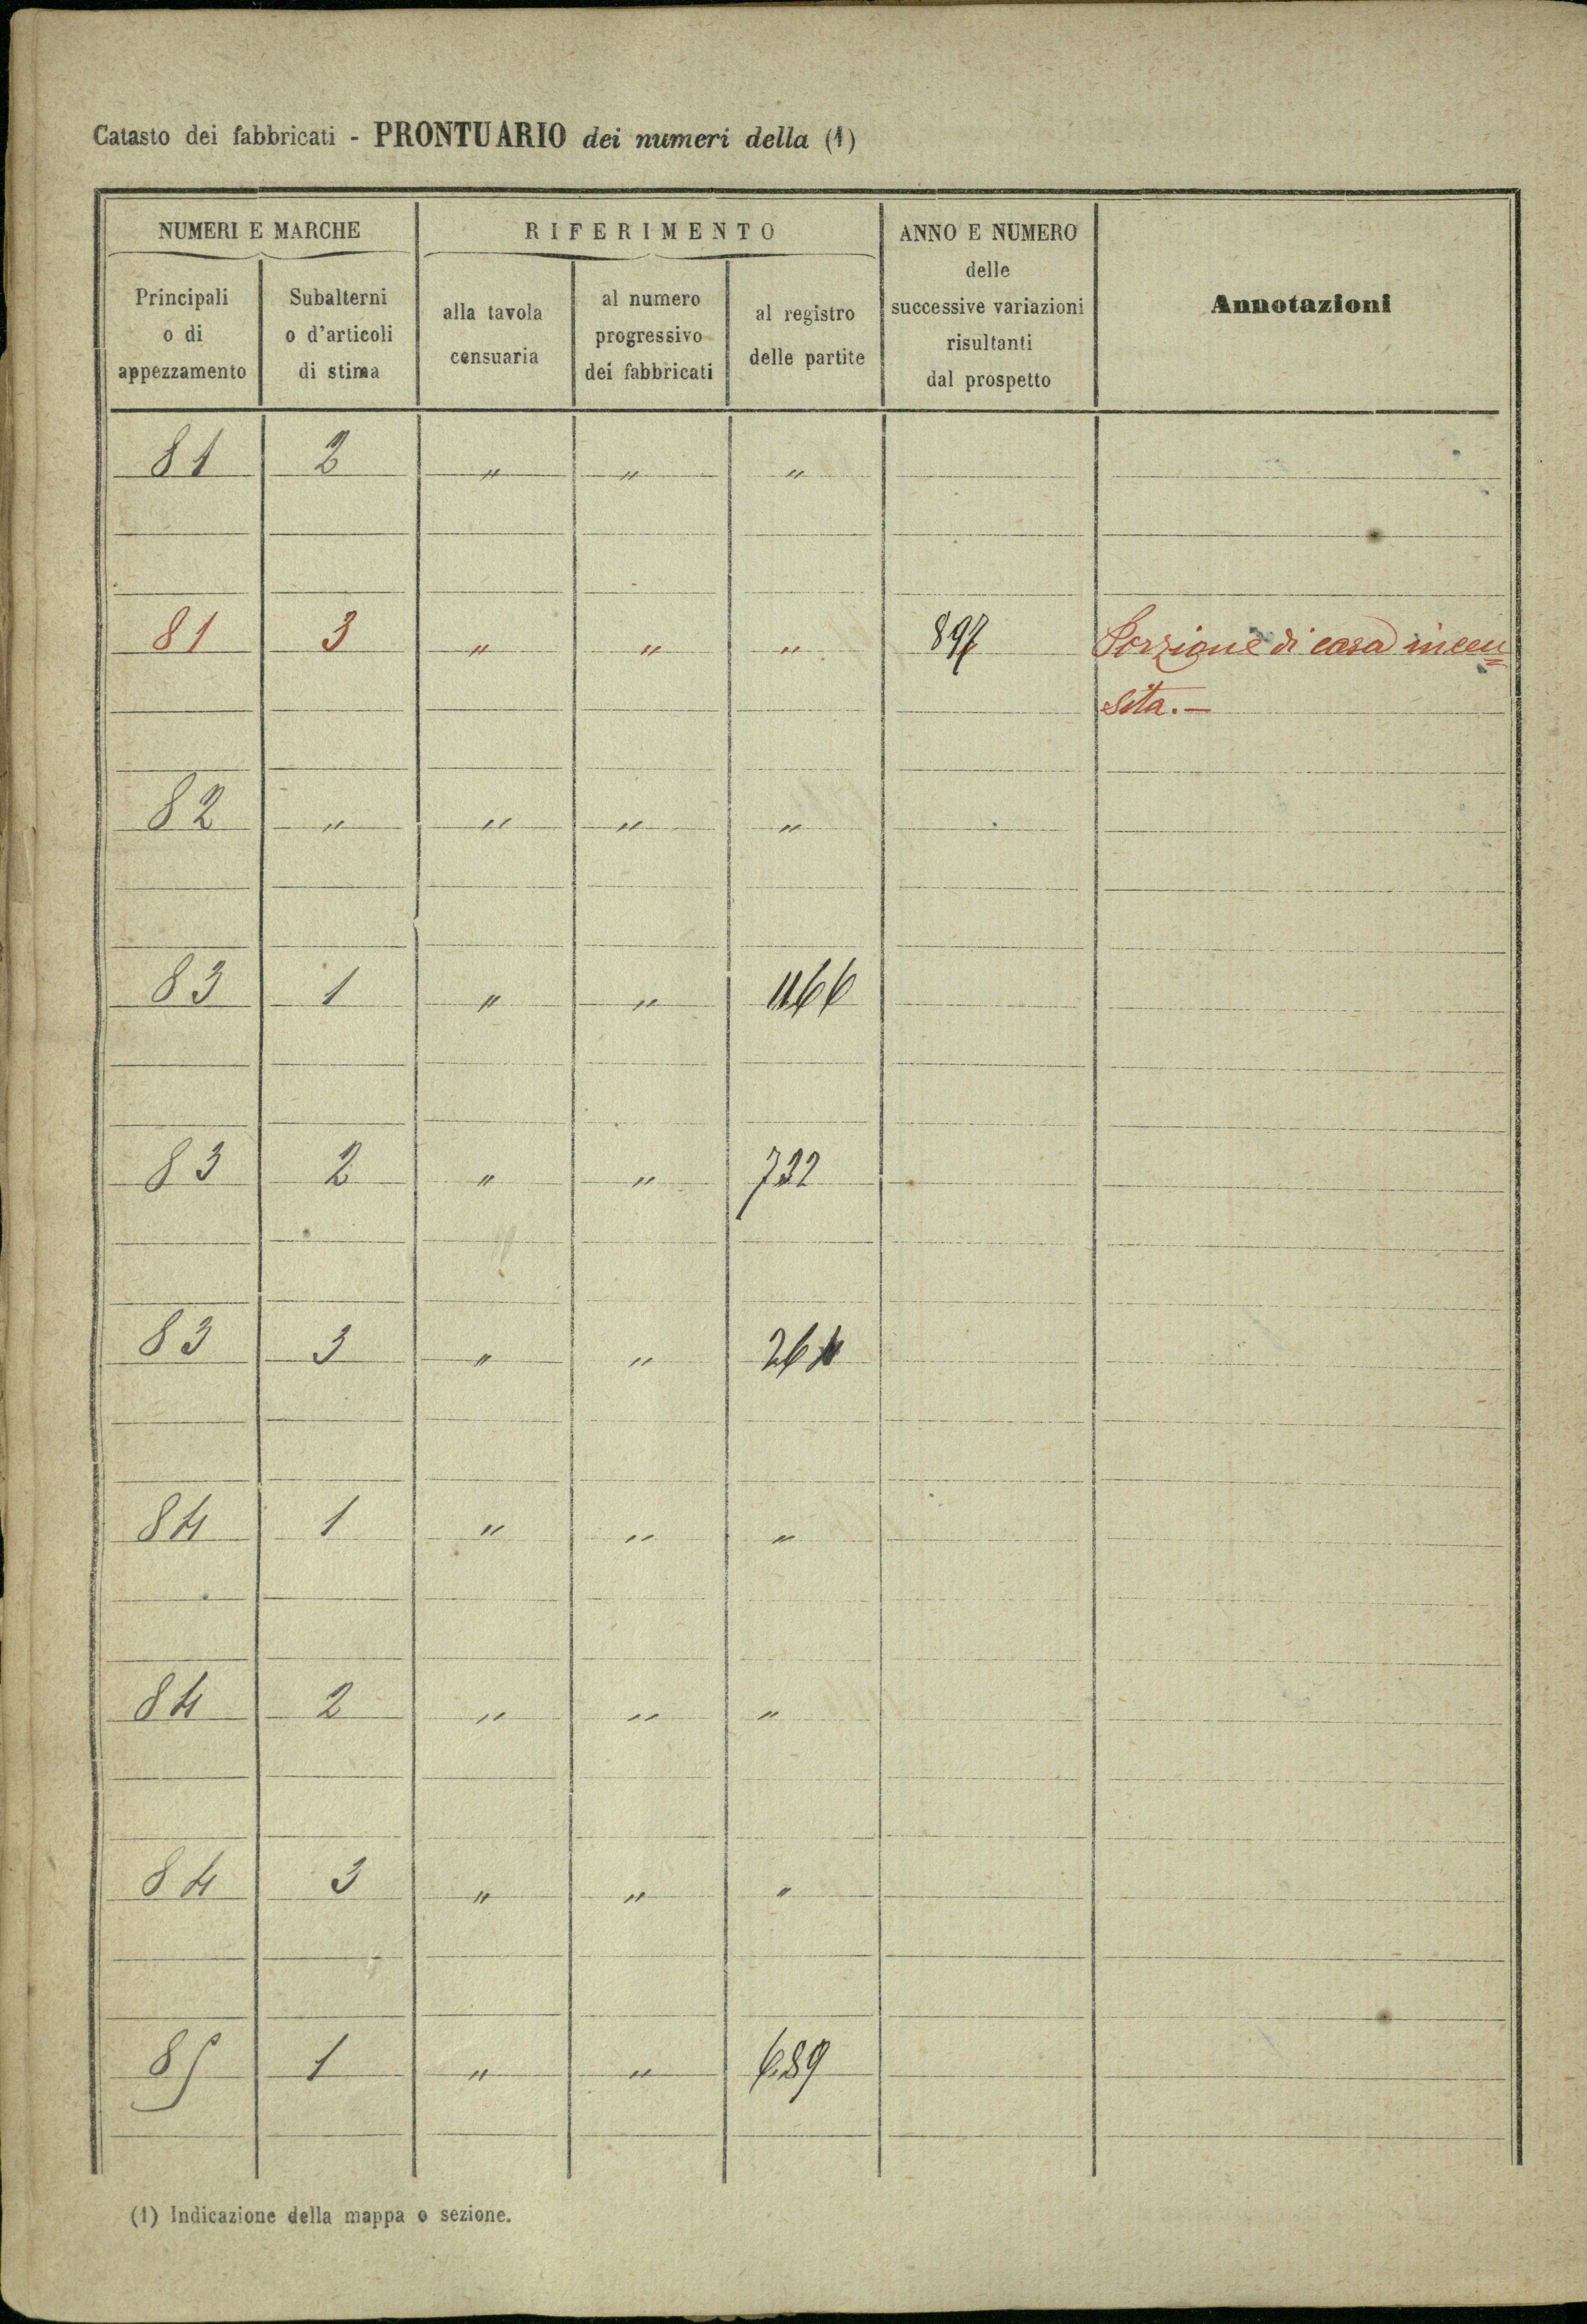 Catasto dei fabbricati - PRONTUARIO dei numeri della (1)
NUMERI E MARCHE
Principali
o di
appezzamento
Subalterni
o d'articoli
di stima
RIFERIMENTO
alla tavola
censuaria
al numero
progressivo
dei fabbricati
al registro
delle partite
ANNO E NUMERO
delle
successive variazioni
risultanti
dal prospetto
Annotazioni
81 2 " " "
81 3 " " " 897 Porzione di casa incen=
sita. —
82 " " " "
83 1 " " 1166
83 2 " " 732
83 3 " "
84 1 " " "
84 2 " " "
84 3 " " "
85 1 " " 689
(1) Indicazione della mappa o sezione.